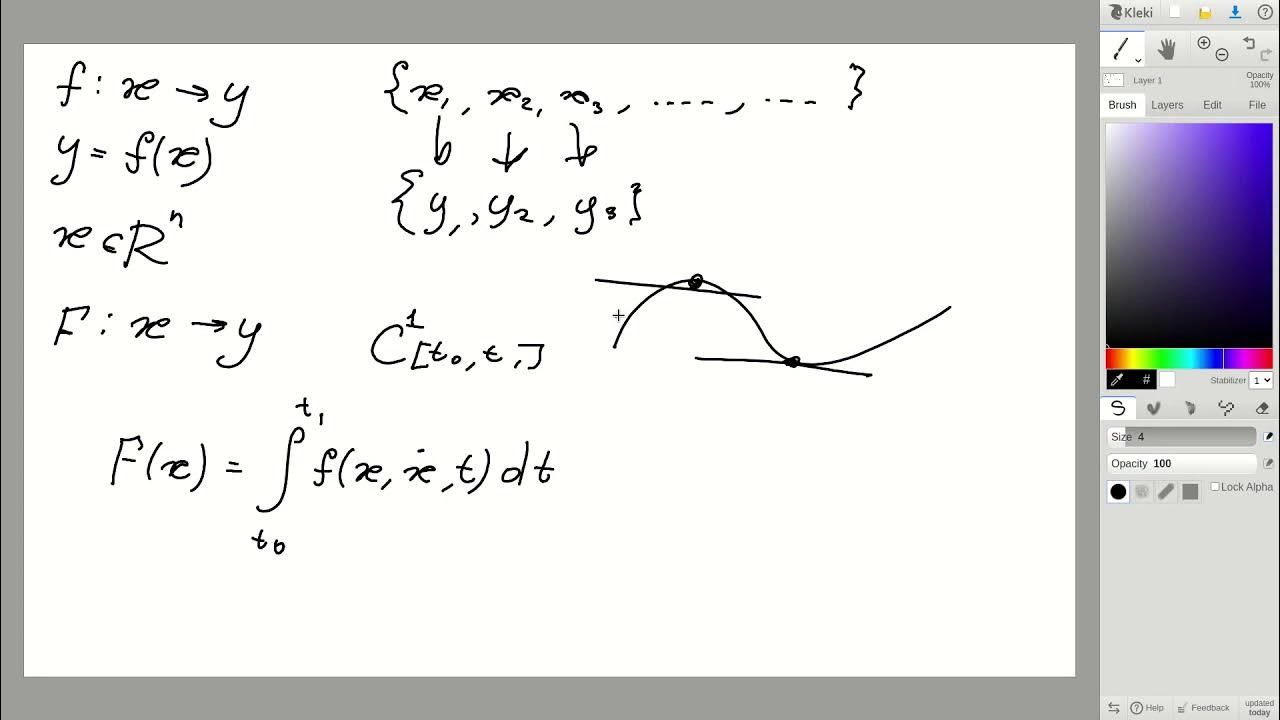 f : x → y
y = f(x)
x ∈ ℝⁿ
{x₁, x₂, x₃, ....., ... }
↓ ↓ ↓
{y₁, y₂, y₃}
F : x → y
C¹[t₀, t₁]
F(x) = ∫ₜ₀ᵗ¹ f(x, ẋ, t) dt
Kleki
Layer 1
Opacity
100%
Brush Layers Edit File
#
Stabilizer 1
Size 4
Opacity 100
Lock Alpha
Help Feedback updated today